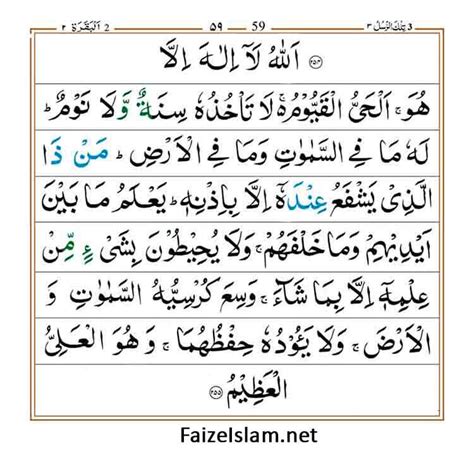 ٢ اَلْبَقَرَة 2 ٥٩ 59 تِلْكَ الرُّسُلُ ٣ 3
اَللّٰهُ لَاۤ اِلٰهَ اِلَّا ﴿۲۵۴﴾
هُوَ ۚ اَلْحَیُّ الْقَیُّوْمُ ۚ۬ لَا تَاْخُذُهٗ سِنَةٌ وَّلَا نَوْمٌ ؕ
لَهٗ مَا فِی السَّمٰوٰتِ وَمَا فِی الْاَرْضِ ؕ مَنْ ذَا
الَّذِیْ یَشْفَعُ عِنْدَهٗۤ اِلَّا بِاِذْنِهٖ ؕ یَعْلَمُ مَا بَیْنَ
اَیْدِیْهِمْ وَمَا خَلْفَهُمْ ۚ وَلَا یُحِیْطُوْنَ بِشَیْءٍ مِّنْ
عِلْمِهٖۤ اِلَّا بِمَا شَآءَ ۚ وَسِعَ كُرْسِیُّهُ السَّمٰوٰتِ وَ
الْاَرْضَ ۚ وَلَا یَـُٔوْدُهٗ حِفْظُهُمَا ۚ وَ هُوَ الْعَلِیُّ
الْعَظِیْمُ ﴿۲۵۵﴾
FaizeIslam.net